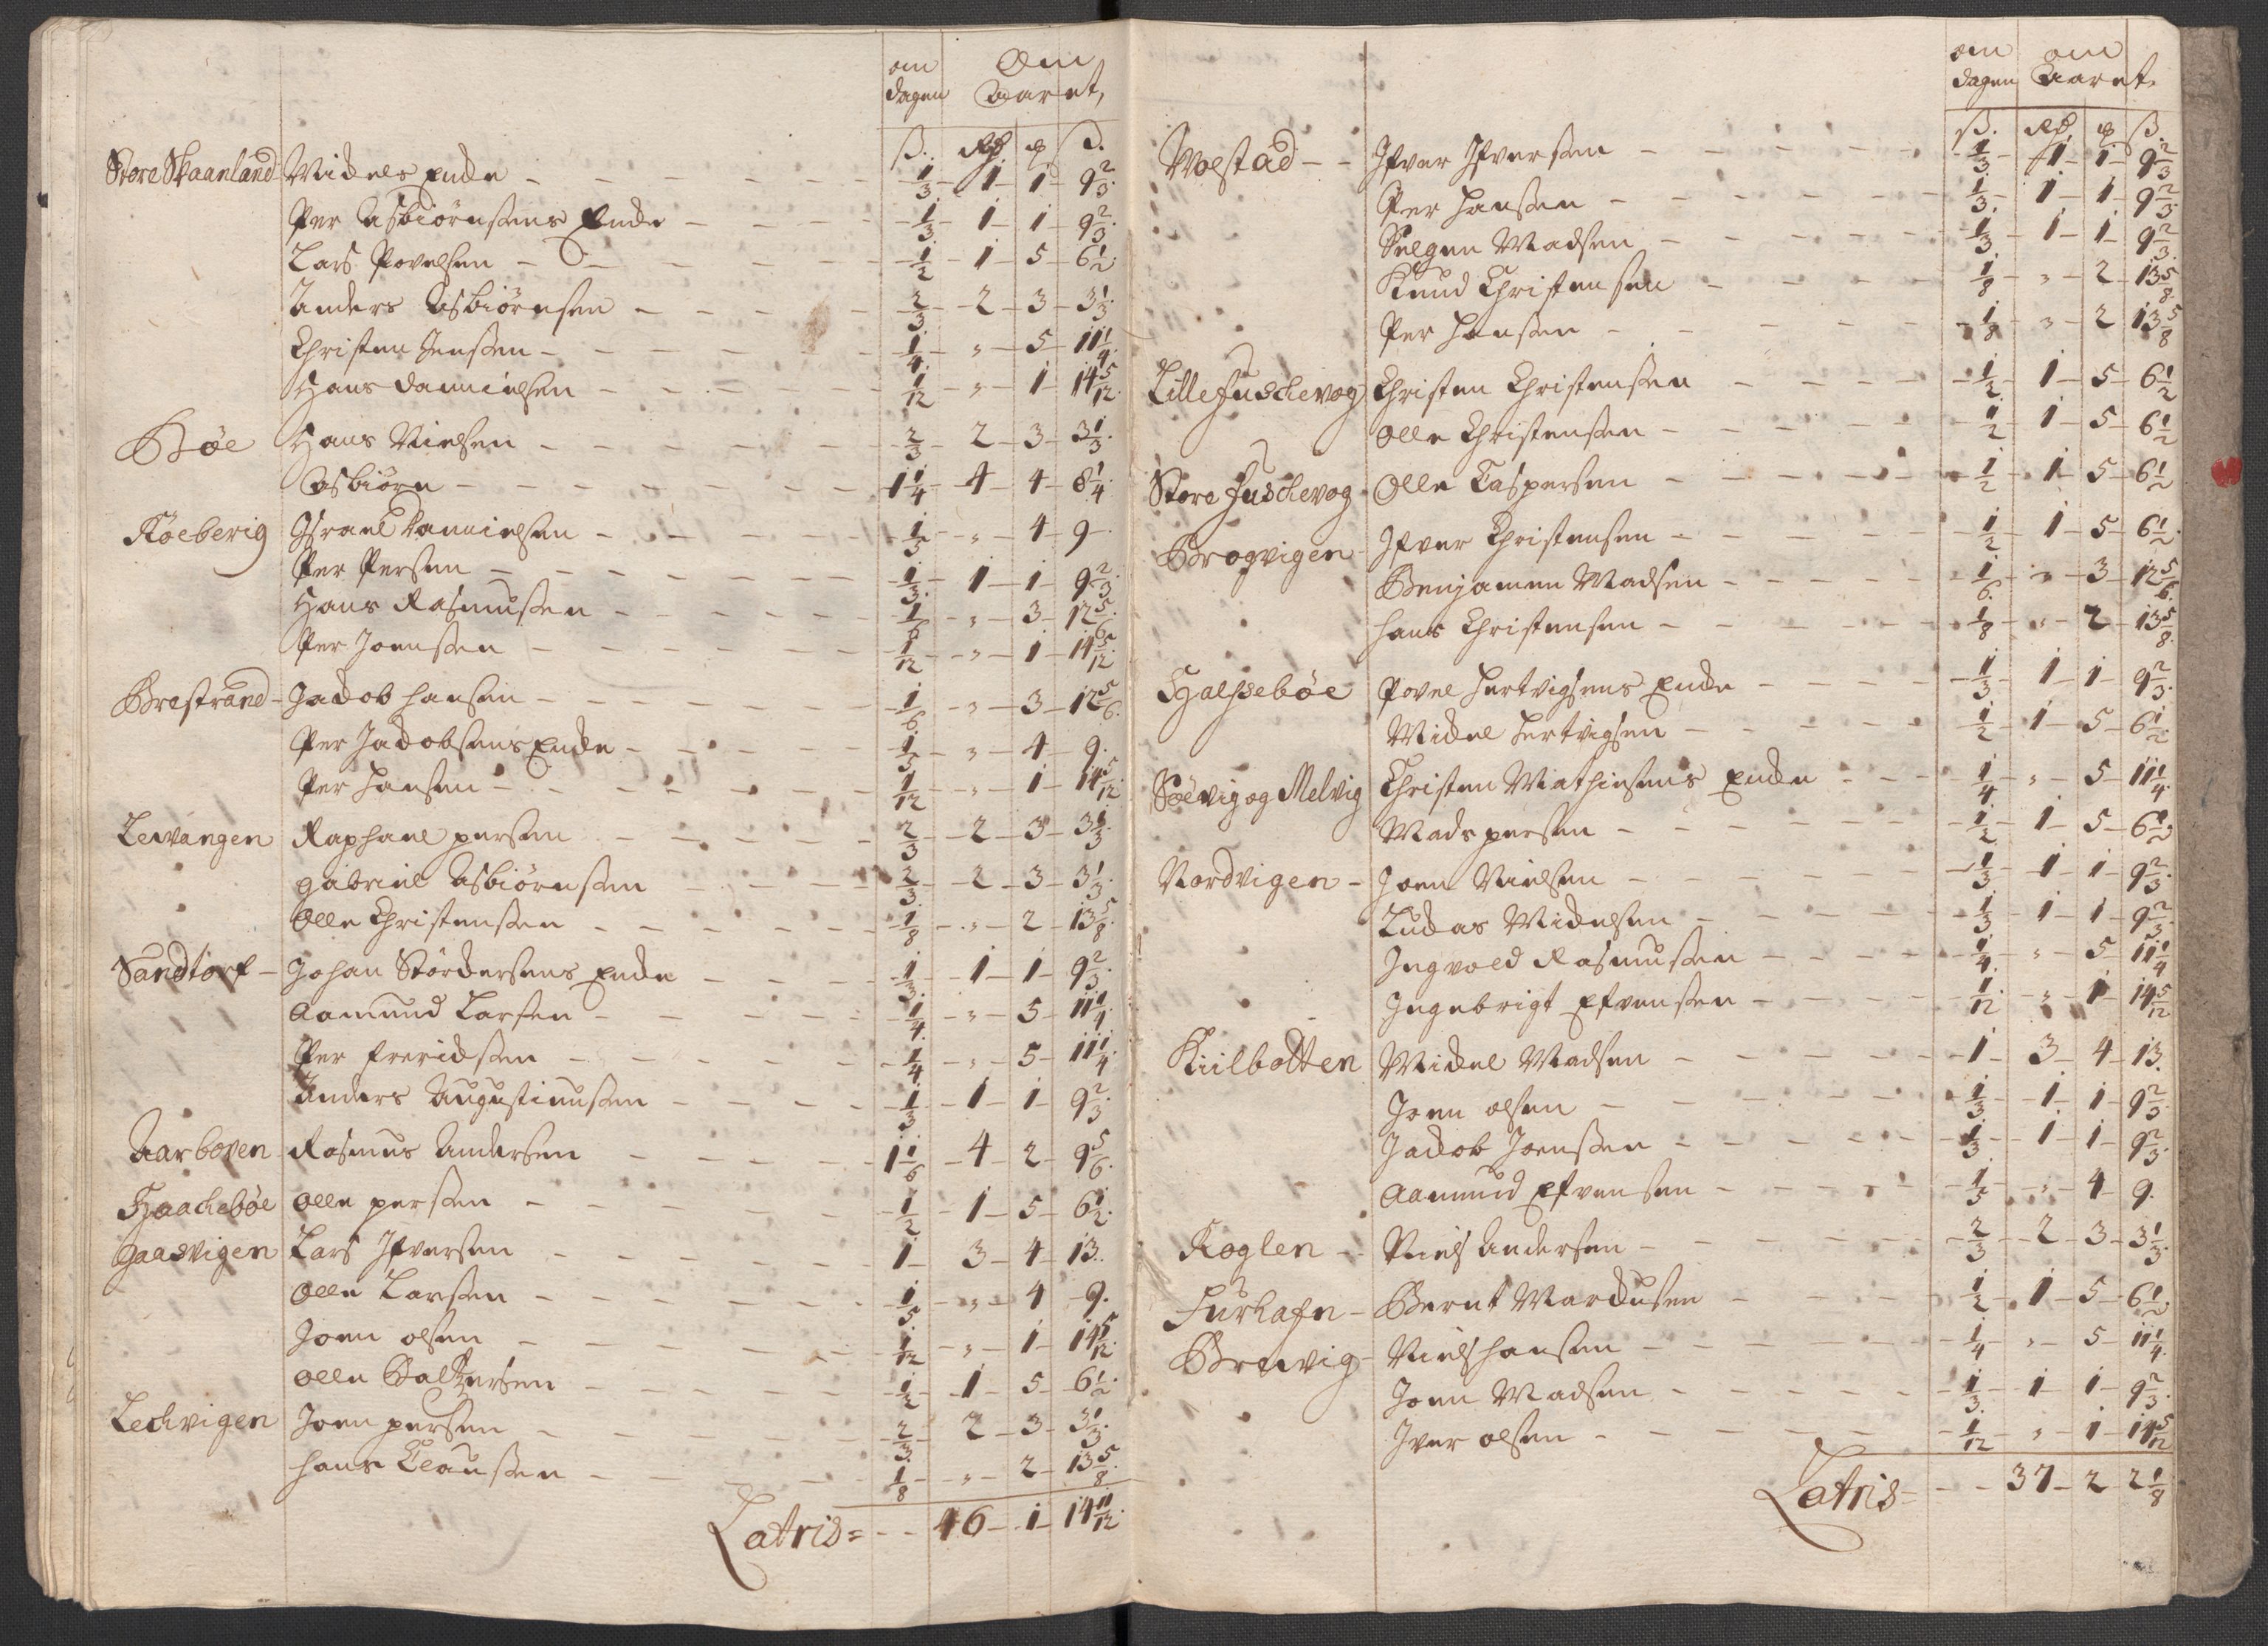 om Om
dagen Aaret,
ß. Rd ꝶ ß.
Store Skaanland Michels Encke - 1/3 - 1 - 1 - 9 2/3
Per Asbiørnsens Encke - 1/3 - 1 - 1 - 9 2/3
Lars Povelsen - 1/2 - 1 - 5 - 6 1/2
Anders Asbiørnsen - 2/3 - 2 - 3 - 3 1/3
Christen Jenssen - 1/4 - " - 5 - 11 1/4
Hans Dannielsen - 1/12 - " - 1 - 14 5/12
Bøe Hans Nielsen - 2/3 - 2 - 3 - 3 1/3
Asbiørn - 1 1/4 - 4 - 4 - 8 1/4
Røeberig Israel Dannielsen - 1/5 - " - 4 - 9
Per Persen - 1/3 - 1 - 1 - 9 2/3
Hans Rasmussen - 1/6 - " - 3 - 12 5/6
Per Joenssen - 1/12 - " - 1 - 14 5/12
Brestrand - Jacob Hansen - 1/6 - " - 3 - 12 5/6
Per Jacobsens Encke - 1/5 - " - 4 - 9.
Per Hansen - 1/12 - " - 1 - 14 5/12
Levangen Raphael persen - 2/3 - 2 - 3 - 3 1/3
Gabriel Asbiørnssen - 2/3 - 2 - 3 - 3 1/3
Olle Christenssen - 1/8 - " - 2 - 13 5/8
Sandtorf - Johan Størckersens Encke - 1/3 - 1 - 1 - 9 2/3
Aamund Larsen - 1/4 - " - 5 - 11 1/4
Per Frericksen - 1/4 - " - 5 - 11 1/4
Anders Augustinussen - 1/3 - 1 - 1 - 9 2/3
Aarboven - Rasmus Andersen - 1 1/6 - 4 - 2 - 9 5/6
Haachebøe Olle persen - 1/2 - 1 - 5 - 6 1/2
Gaasvigen Lars Ifversen - 1 - 3 - 4 - 13.
Olle Larssen - 1/5 - " - 4 - 9.
Joen olsen - 1/12 - " - 1 - 14 5/12
Olle Baltzersen - 1/2 - 1 - 5 - 6 1/2
Lechvigen Joen persen - 2/3 - 2 - 3 - 3 1/3
Hans Claussen - 1/8 - " - 2 - 13 5/8
Latris = - - 46 - 1 - 14 11/12
om om
dagen Aaret.
ß. Rd ꝶ ß.
Wolstad - - Ifver Ifverssen - 1/3 - 1 - 1 - 9 2/3
Per Hanssen - 1/3 - 1 - 1 - 9 2/3
Helgen Madsen - 1/3 - 1 - 1 - 9 2/3
Knud Christensen - 1/8 - " - 2 - 13 5/8
Per Hanssen - 1/8 - " - 2 - 13 5/8
Lille Fuschevog Christen Christenssen - 1/2 - 1 - 5 - 6 1/2
Olle Christenssen - 1/2 - 1 - 5 - 6 1/2
Store Fuschevog Olle Caspersen - 1/2 - 1 - 5 - 6 1/2
Brogvigen - Ifver Christensen - 1/2 - 1 - 5 - 6 1/2
Benjamen Madsen - 1/6 - " - 3 - 12 5/6
Hans Christensen - 1/8 - " - 2 - 13 5/8
Halssebøe Povel Hertvigsens Encke - 1/3 - 1 - 1 - 9 2/3
Michel Hertvigsen - 1/2 - 1 - 5 - 6 1/2
Søevig og Melvig Christen Mathiesens Encke - 1/4 - " - 5 - 11 1/4
Mads persen - 1/2 - 1 - 5 - 6 1/2
Nordvigen - Joen Nielsen - 1/3 - 1 - 1 - 9 2/3
Lucas Michelsen - 1/3 - 1 - 1 - 9 2/3
Ingvold Rasmussen - 1/4 - " - 5 - 11 1/4
Ingebrigt Efvenssen - 1/12 - " - 1 - 14 5/12
Kiilbotten Michel Madsen - 1 - 3 - 4 - 13.
Joen olsen - 1/3 - 1 - 1 - 9 2/3
Jacob Joenssen - 1/3 - 1 - 1 - 9 2/3
Aamund Efvensen - 1/5 - " - 4 - 9.
Roglen - Niels Andersen - 2/3 - 2 - 3 - 3 1/3
Furhafn - Bernt Marcusen - 1/2 - 1 - 5 - 6 1/2
Brevig - Niels hansen - 1/4 - " - 5 - 11 1/4
Joen Madsen - 1/3 - 1 - 1 - 9 2/3
Iver olsen - 1/12 - " - 1 - 14 5/12
Latris = - - 37 - 2 - 2 1/8